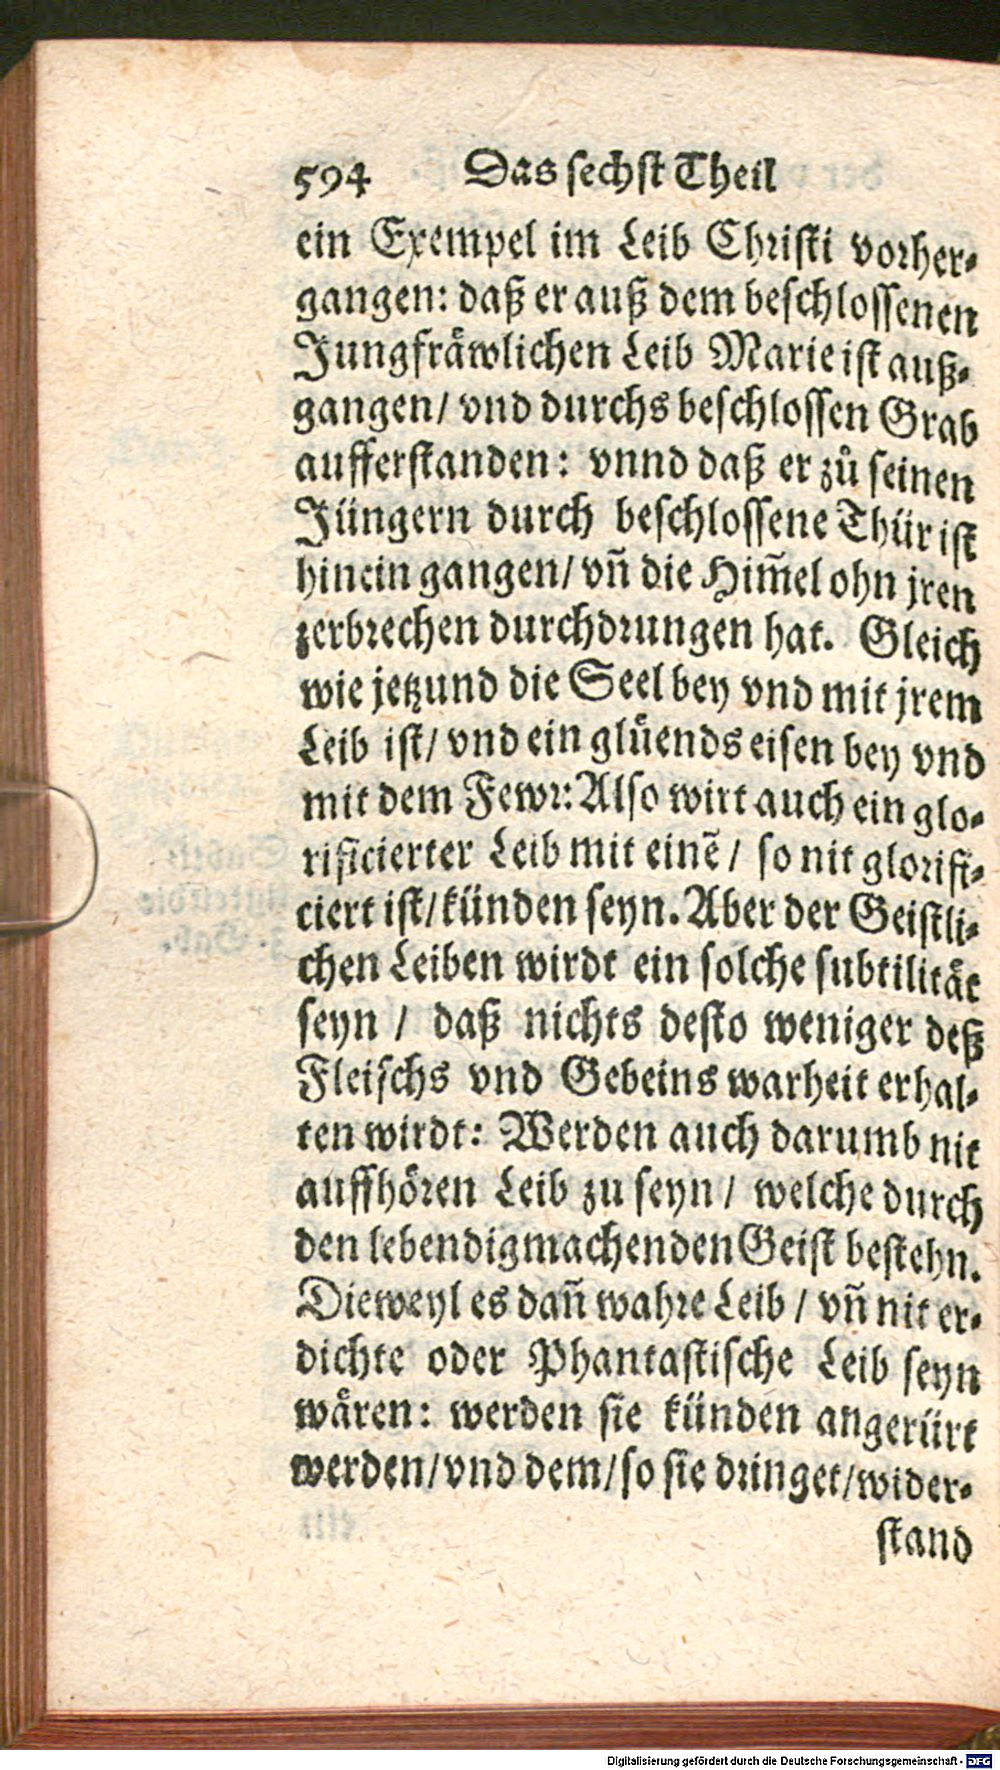 594 Das sechst Theil
ein Exempel im Leib Christi vorher-
gangen: daß er auß dem beschlossenen
Jungfräwlichen Leib Marie ist auß-
gangen/ vnd durchs beschlossen Grab
aufferstanden: vnnd daß er zů seinen
Jüngern durch beschlossene Thür ist
hinein gangen/ vñ die Him̃el ohn jren
zerbrechen durchdrungen hat. Gleich
wie jetzund die Seel bey vnd mit jrem
Leib ist/ vnd ein glüends eisen bey vnd
mit dem Fewr: Also wirt auch ein glo-
rificierter Leib mit einẽ / so nit glorifi-
ciert ist/ künden seyn. Aber der Geistli-
chen Leiben wirdt ein solche subtilität
seyn / daß nichts desto weniger deß
Fleischs vnd Gebeins warheit erhal-
ten wirdt: Werden auch darumb nit
auffhören Leib zu seyn / welche durch
den lebendigmachenden Geist bestehn.
Dieweyl es dañ wahre Leib / vñ nit er-
dichte oder Phantastische Leib seyn
wären: werden sie künden angerürt
werden/ vnd dem/ so sie dringet/ wider-
stand
Digitalisierung gefördert durch die Deutsche Forschungsgemeinschaft - DFG